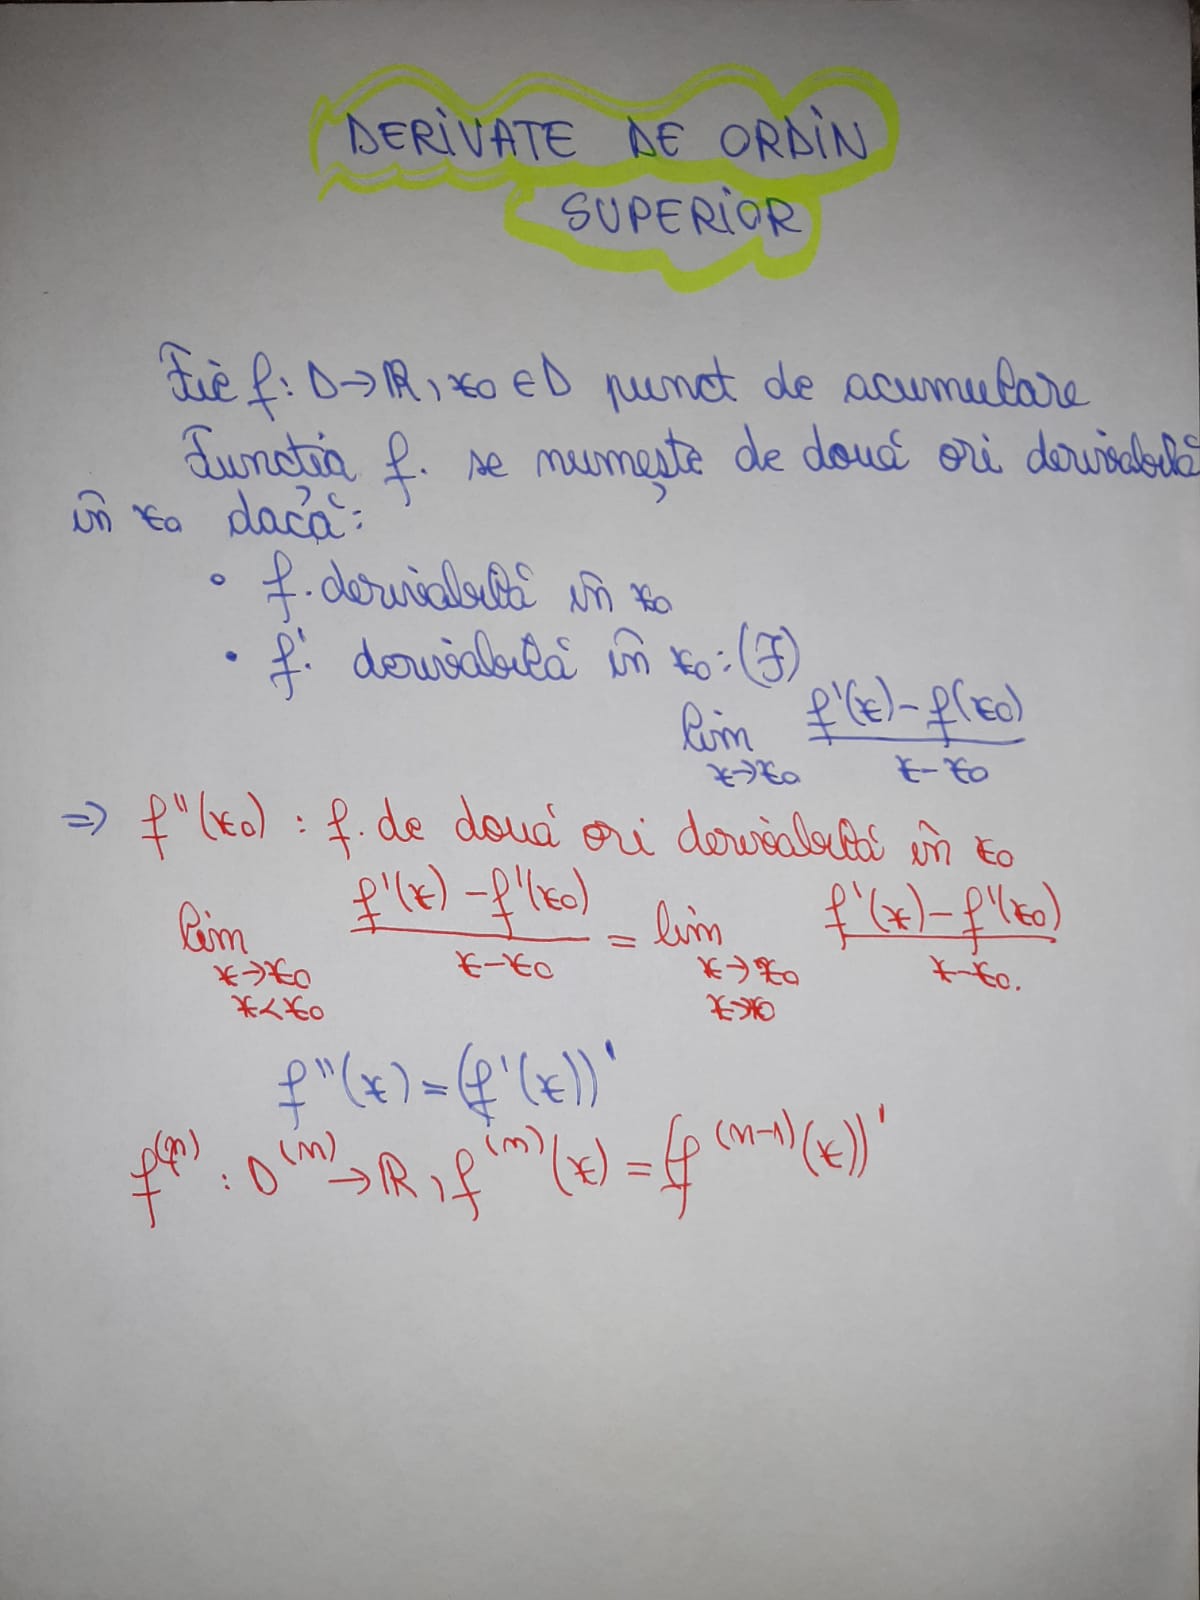 DERIVATE DE ORDIN
SUPERIOR
Fie f: D→ℝ, x₀ ∈ D punct de acumulare
Funcția f. se numește de două ori derivabilă
în x₀ dacă:
• f. derivabilă în x₀
• f'. derivabilă în x₀: (∃)
lim x→x₀ (f'(x) - f(x₀)) / (x - x₀)
⇒ f''(x₀) : f. de două ori derivabilă în x₀
lim x→x₀ x<x₀ (f'(x) - f'(x₀)) / (x - x₀) = lim x→x₀ (f'(x) - f'(x₀)) / (x - x₀).
f''(x) = (f'(x))'
f⁽ⁿ⁾ : D⁽ⁿ⁾ → ℝ, f⁽ⁿ⁾(x) = (f⁽ⁿ⁻¹⁾(x))'